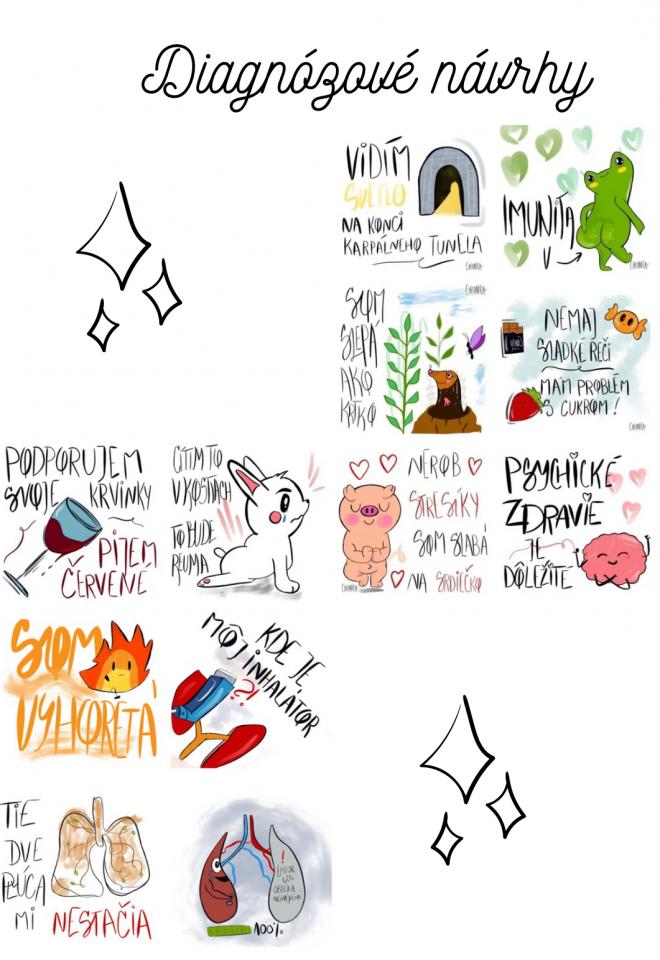 Diagnózové návrhy
VIDÍM
SVETLO
NA KONCI
KARPÁLNEHO TUNELA
IMUNITA
V
SOM
SLEPÁ
AKO
KRTKO
NEMAJ
SLADKÉ REČI
MÁM PROBLÉM
S CUKROM!
PODPORUJEM
SVOJE KRVINKY
PIJEM
ČERVENÉ
CÍTIM TO
V KOSTIACH
TO BUDE
REUMA
NEROB
STRESÍKY
SOM SLABÁ
NA SRDIEČKO
PSYCHICKÉ
ZDRAVIE
JE
DÔLEŽITÉ
SOM
VYHORETÁ
KDE JE
MÔJ INHALÁTOR
?!
TIE
DVE
PĽÚCA
MI NESTAČIA
!
ERROR
404
OBLIČKA
NENÁJDENÁ
100%